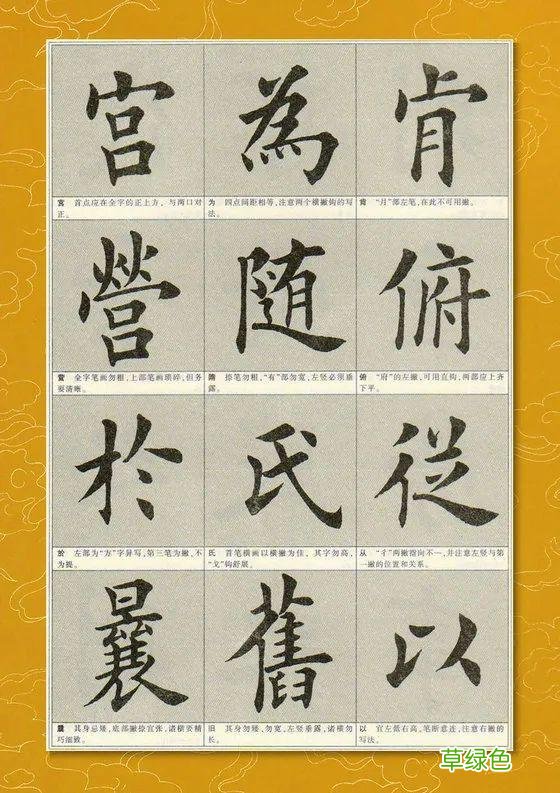 宫
為
肯
宫 首点应在全字的正上方，与两口对
正。
为 四点间距相等，注意两个横撇钩的写
法。
肯 “月”部左笔，在此不可用撇。
營
随
俯
营 全字笔画勿粗，上部笔画琐碎，但务
要清晰。
隋 捺笔勿粗，“有”部勿宽，左竖必须垂
露。
俯 “府”的左撇，可用直钩，两部应上齐
下平。
於
氏
從
於 左部为“方”字异写，第三笔为撇，不
为提。
氏 首笔横画以横撇为佳，其字勿高，
“戈”钩舒展。
从 “彳”两撇指向不一，并注意左竖与第
一撇的位置和关系。
曩
舊
以
曩 其身忌矮，底部撇捺宜张，诸横要精
巧细致。
旧 其身勿矮、勿宽，左竖垂露，诸横勿
长。
以 宜左低右高，笔断意连，注意右撇的
写法。
草绿色